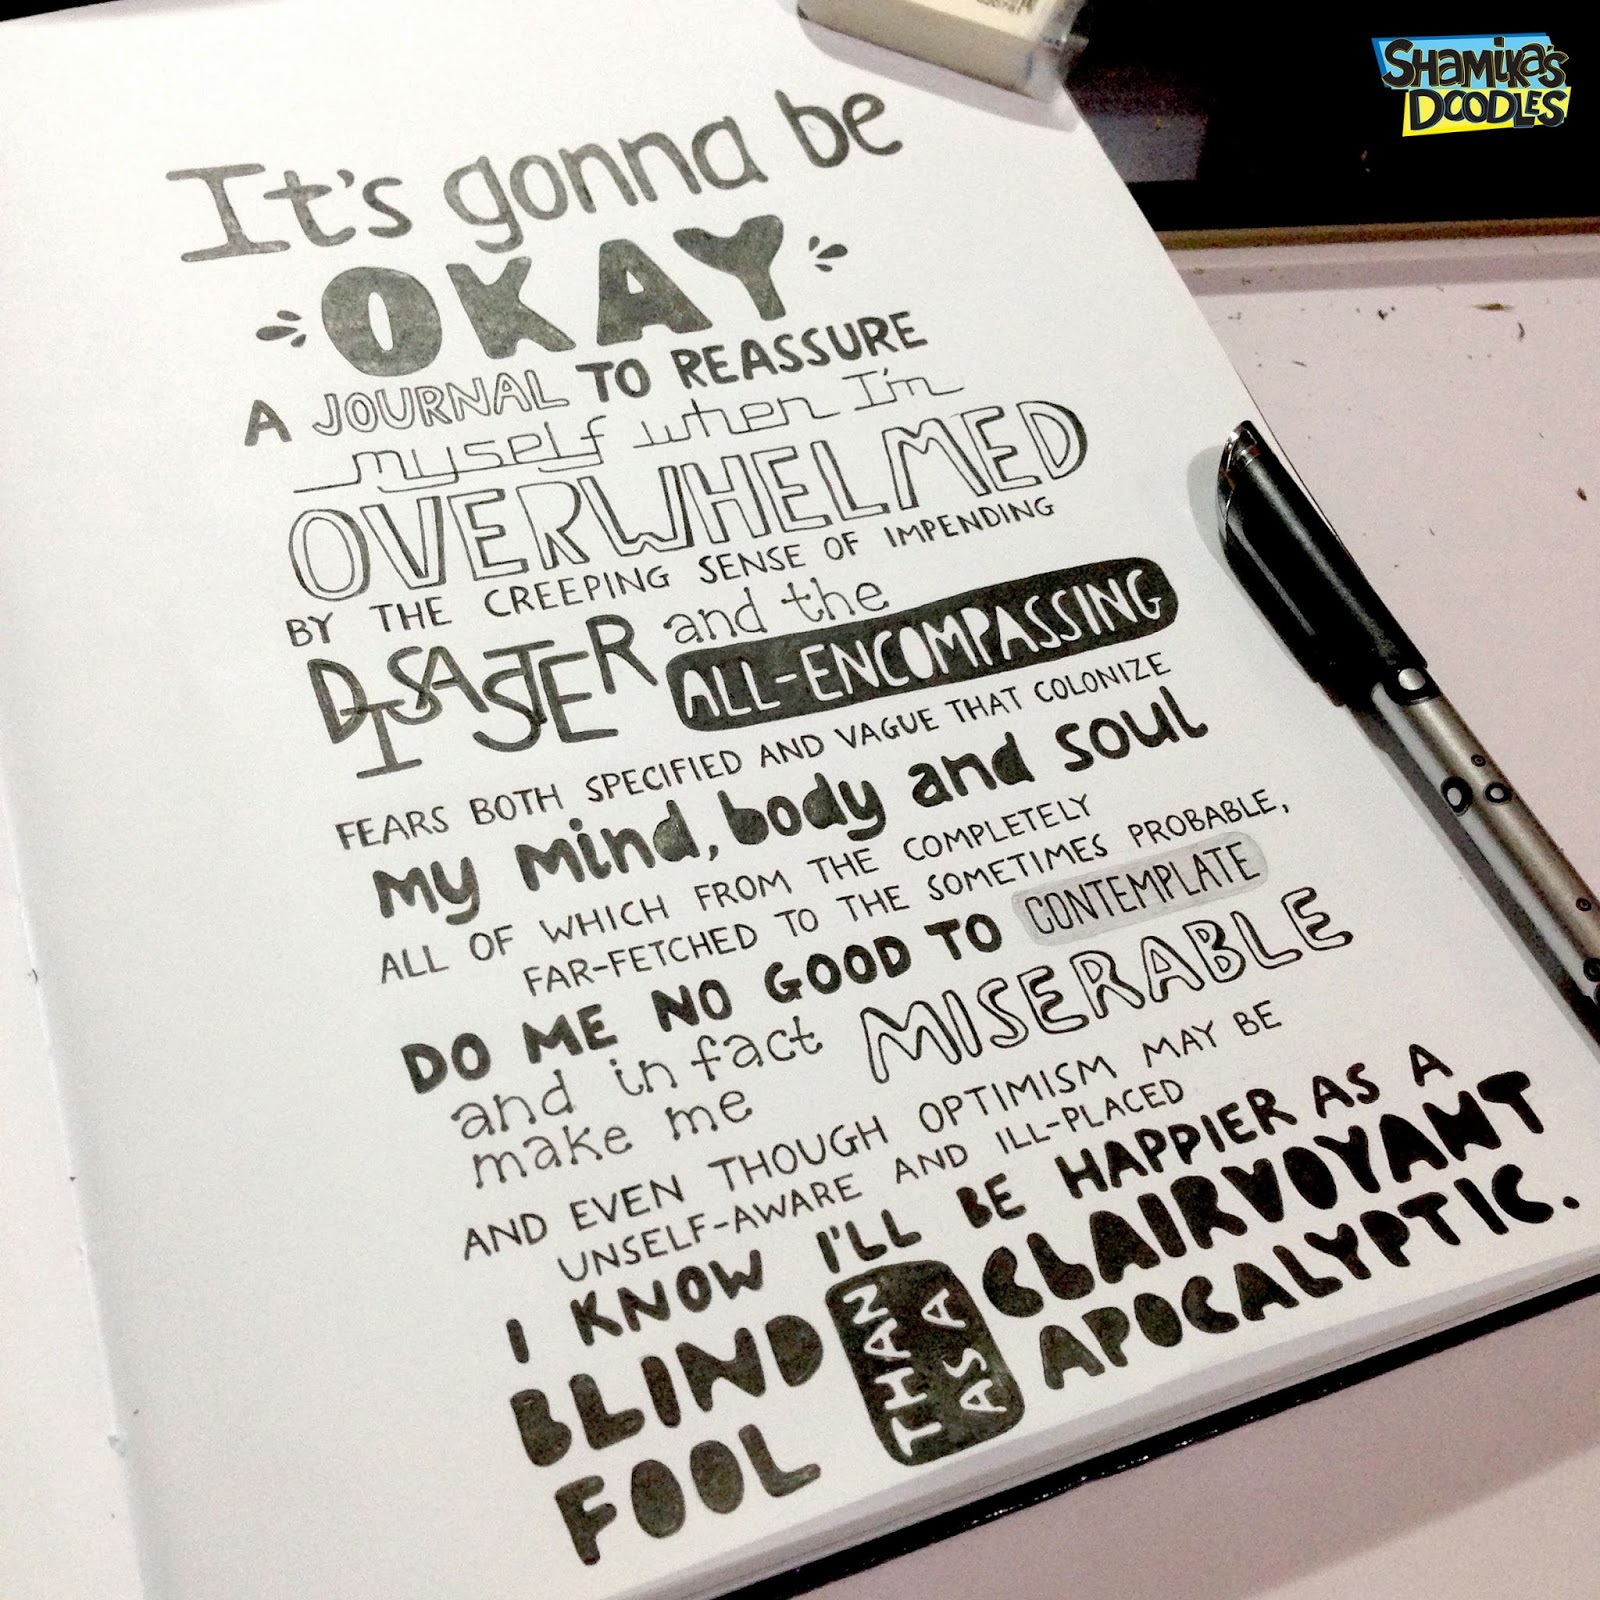 SHAMIKA'S
DOODLES
It's gonna be
OKAY
A JOURNAL TO REASSURE
myself when I'm
OVERWHELMED
BY THE CREEPING SENSE OF IMPENDING
DISASTER and the
ALL-ENCOMPASSING
FEARS BOTH SPECIFIED AND VAGUE THAT COLONIZE
my mind, body and soul
ALL OF WHICH FROM THE COMPLETELY
FAR-FETCHED TO THE SOMETIMES PROBABLE,
DO ME NO GOOD TO CONTEMPLATE
and in fact
make me MISERABLE
AND EVEN THOUGH OPTIMISM MAY BE
UNSELF-AWARE AND ILL-PLACED
I KNOW I'LL BE HAPPIER AS A
BLIND
FOOL
THAN
AS A
CLAIRVOYANT
APOCALYPTIC.